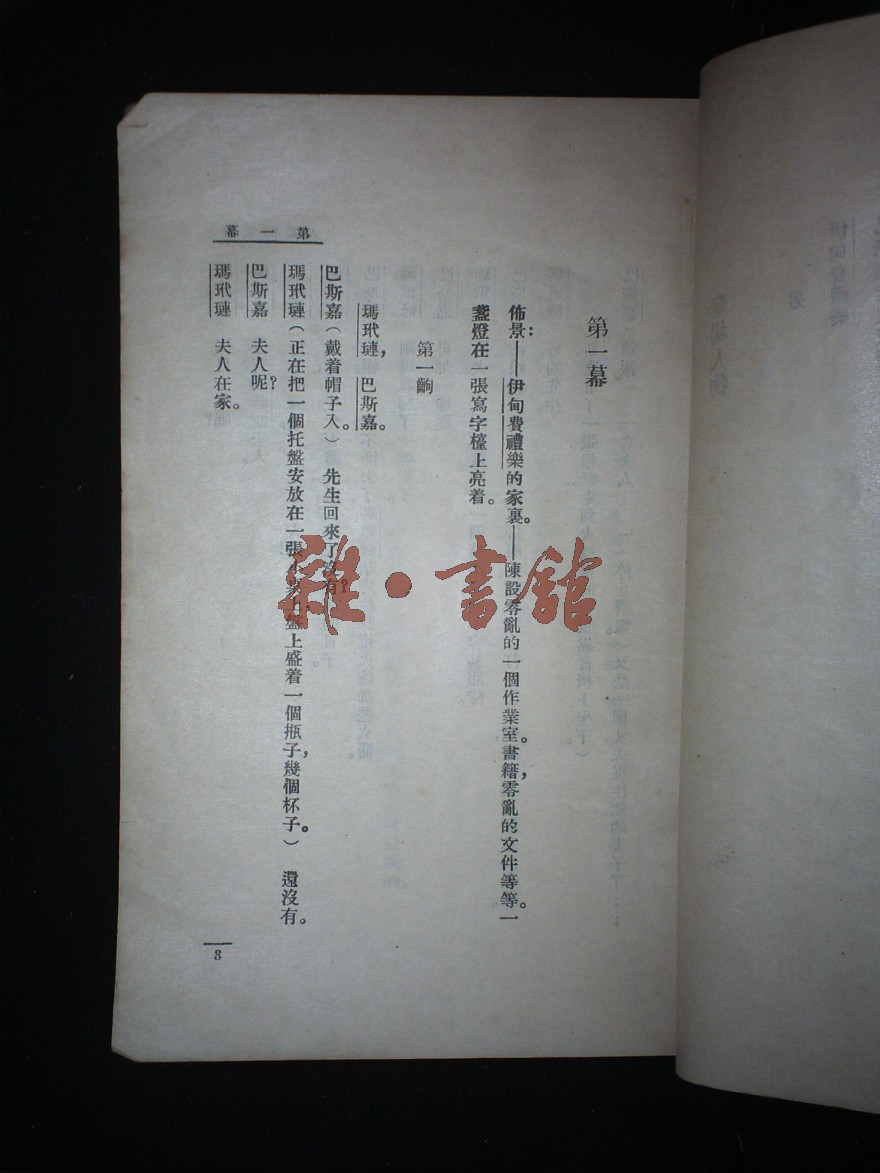 第一幕
佈景：——伊甸費禮樂的家裏。——陳設零亂的一個作業室。書籍，零亂的文件等等。一
盞燈在一張寫字檯上亮着。
第一齣
瑪玳璉，巴斯嘉。
巴斯嘉（戴着帽子入。） 先生回來了沒有？
瑪玳璉（正在把一個托盤安放在一張小桌上，盤上盛着一個瓶子，幾個杯子。） 還沒有。
巴斯嘉 夫人呢？
瑪玳璉 夫人在家。
第一幕
3
雜·書館